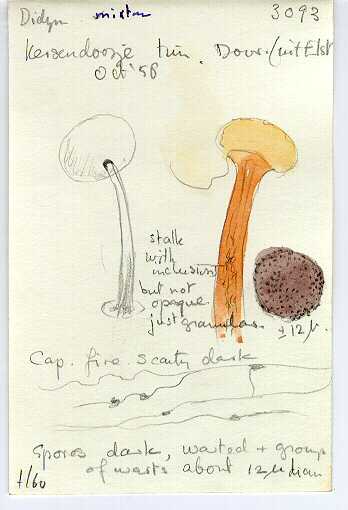 Didym mixtum 3093
Kersendoosje tuin. Doorw. (uit Elst
Oct '56
stalk
with
inclusions
but not
opaque.
just granular.
± 12 µ.
Cap. fire. scanty dark
Spores dark, warted + groups
of warts about 12 µ diam
1/60